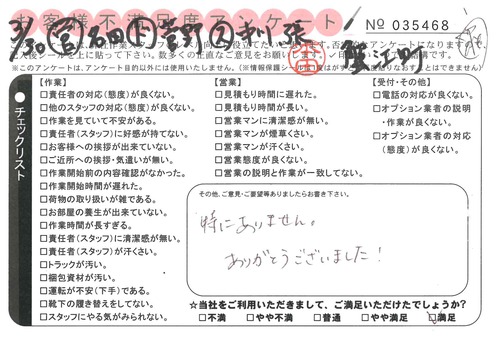 お客様不満足度アンケート
No 035468
3/30 営 名田 ト 菅野 ス 利張
蟹江町
※このアンケートは、アンケート目的以外には使用いたしません。
チェックリスト
【作業】
□責任者の対応(態度)が良くない。
□他のスタッフの対応(態度)が良くない。
□作業を見ていて不安がある。
□責任者(スタッフ)に好感が持てない。
□お客様への挨拶が出来ていない。
□ご近所への挨拶・気遣いが無い。
□作業開始前の内容確認がなかった。
□作業開始時間が遅れた。
□荷物の取り扱いが雑である。
□お部屋の養生が出来ていない。
□作業時間が長すぎる。
□責任者(スタッフ)に清潔感が無い。
□責任者(スタッフ)が汗くさい。
□トラックが汚い。
□梱包資材が汚い。
□運転が不安(下手)である。
□靴下の履き替えをしてない。
□スタッフにやる気が感じられない。
【営業】
□見積もり時間に遅れた。
□見積もり時間が長い。
□営業マンに清潔感が無い。
□営業マンが煙草くさい。
□営業マンが汗くさい。
□営業態度が良くない。
□営業の説明と作業が一致してない。
【受付・その他】
□電話の対応が良くない。
□オプション業者の説明
・作業が良くない。
□オプション業者の対応
(態度)が良くない。
その他、ご意見・ご要望等ありましたらお書き下さい。
特にありません。
ありがとうございました!
☆当社をご利用いただきまして、ご満足いただけたでしょうか?
□不満 □やや不満 □普通 □やや満足 □満足